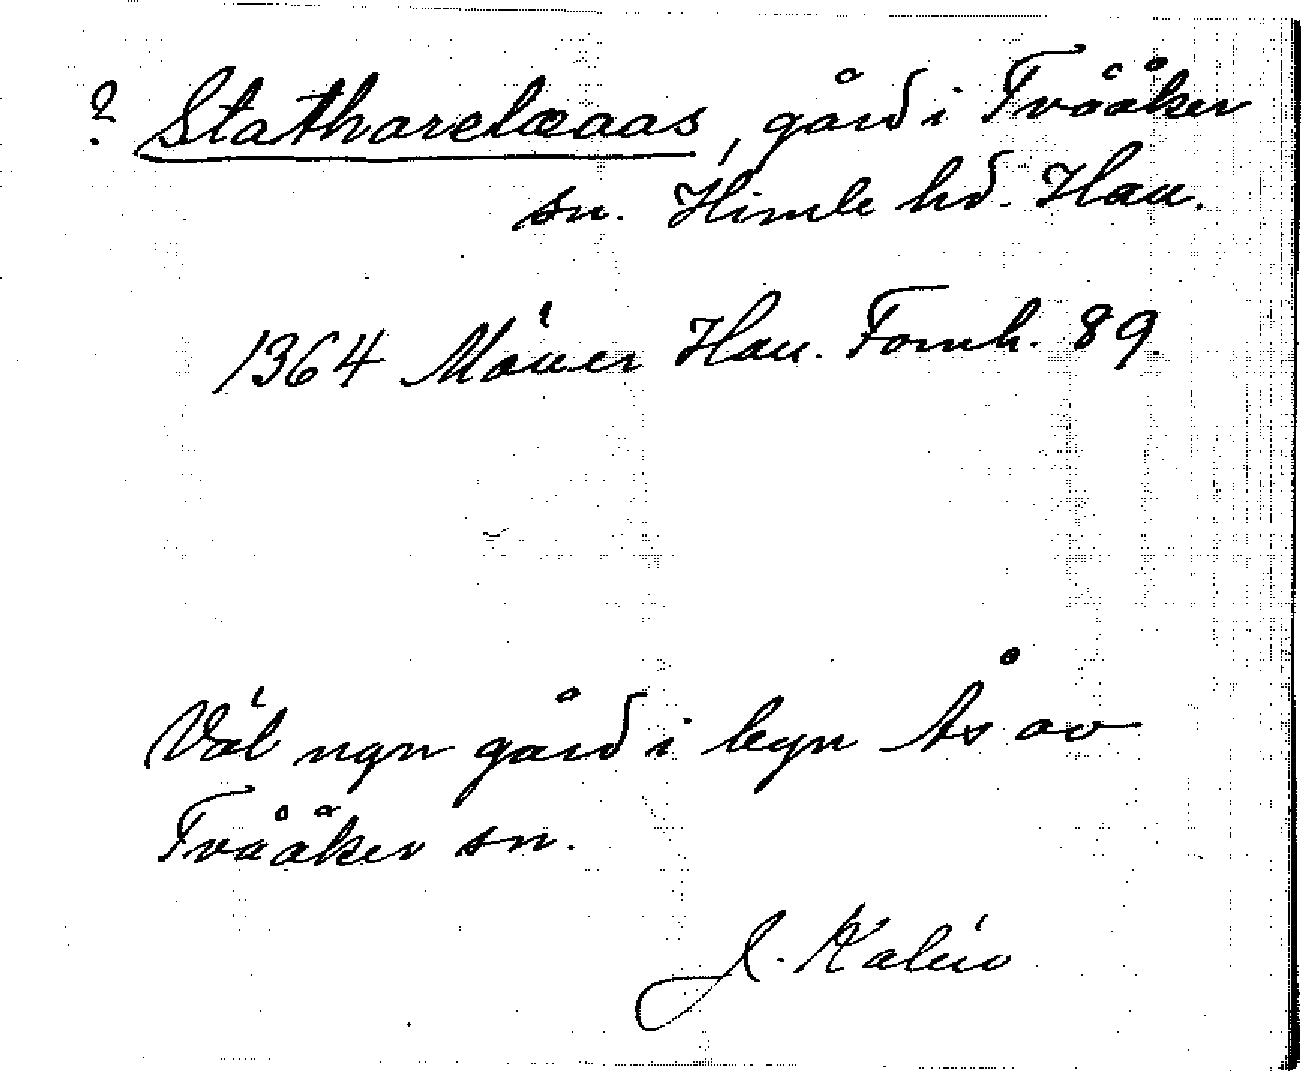 ? Statharelæaas, gård i Tvååker
sn. Himle hd. Hall.
1364 Mörner Hall. Fornh. 89.
Väl ngn gård i byn Ås av
Tvååker sn.
J. Kalén